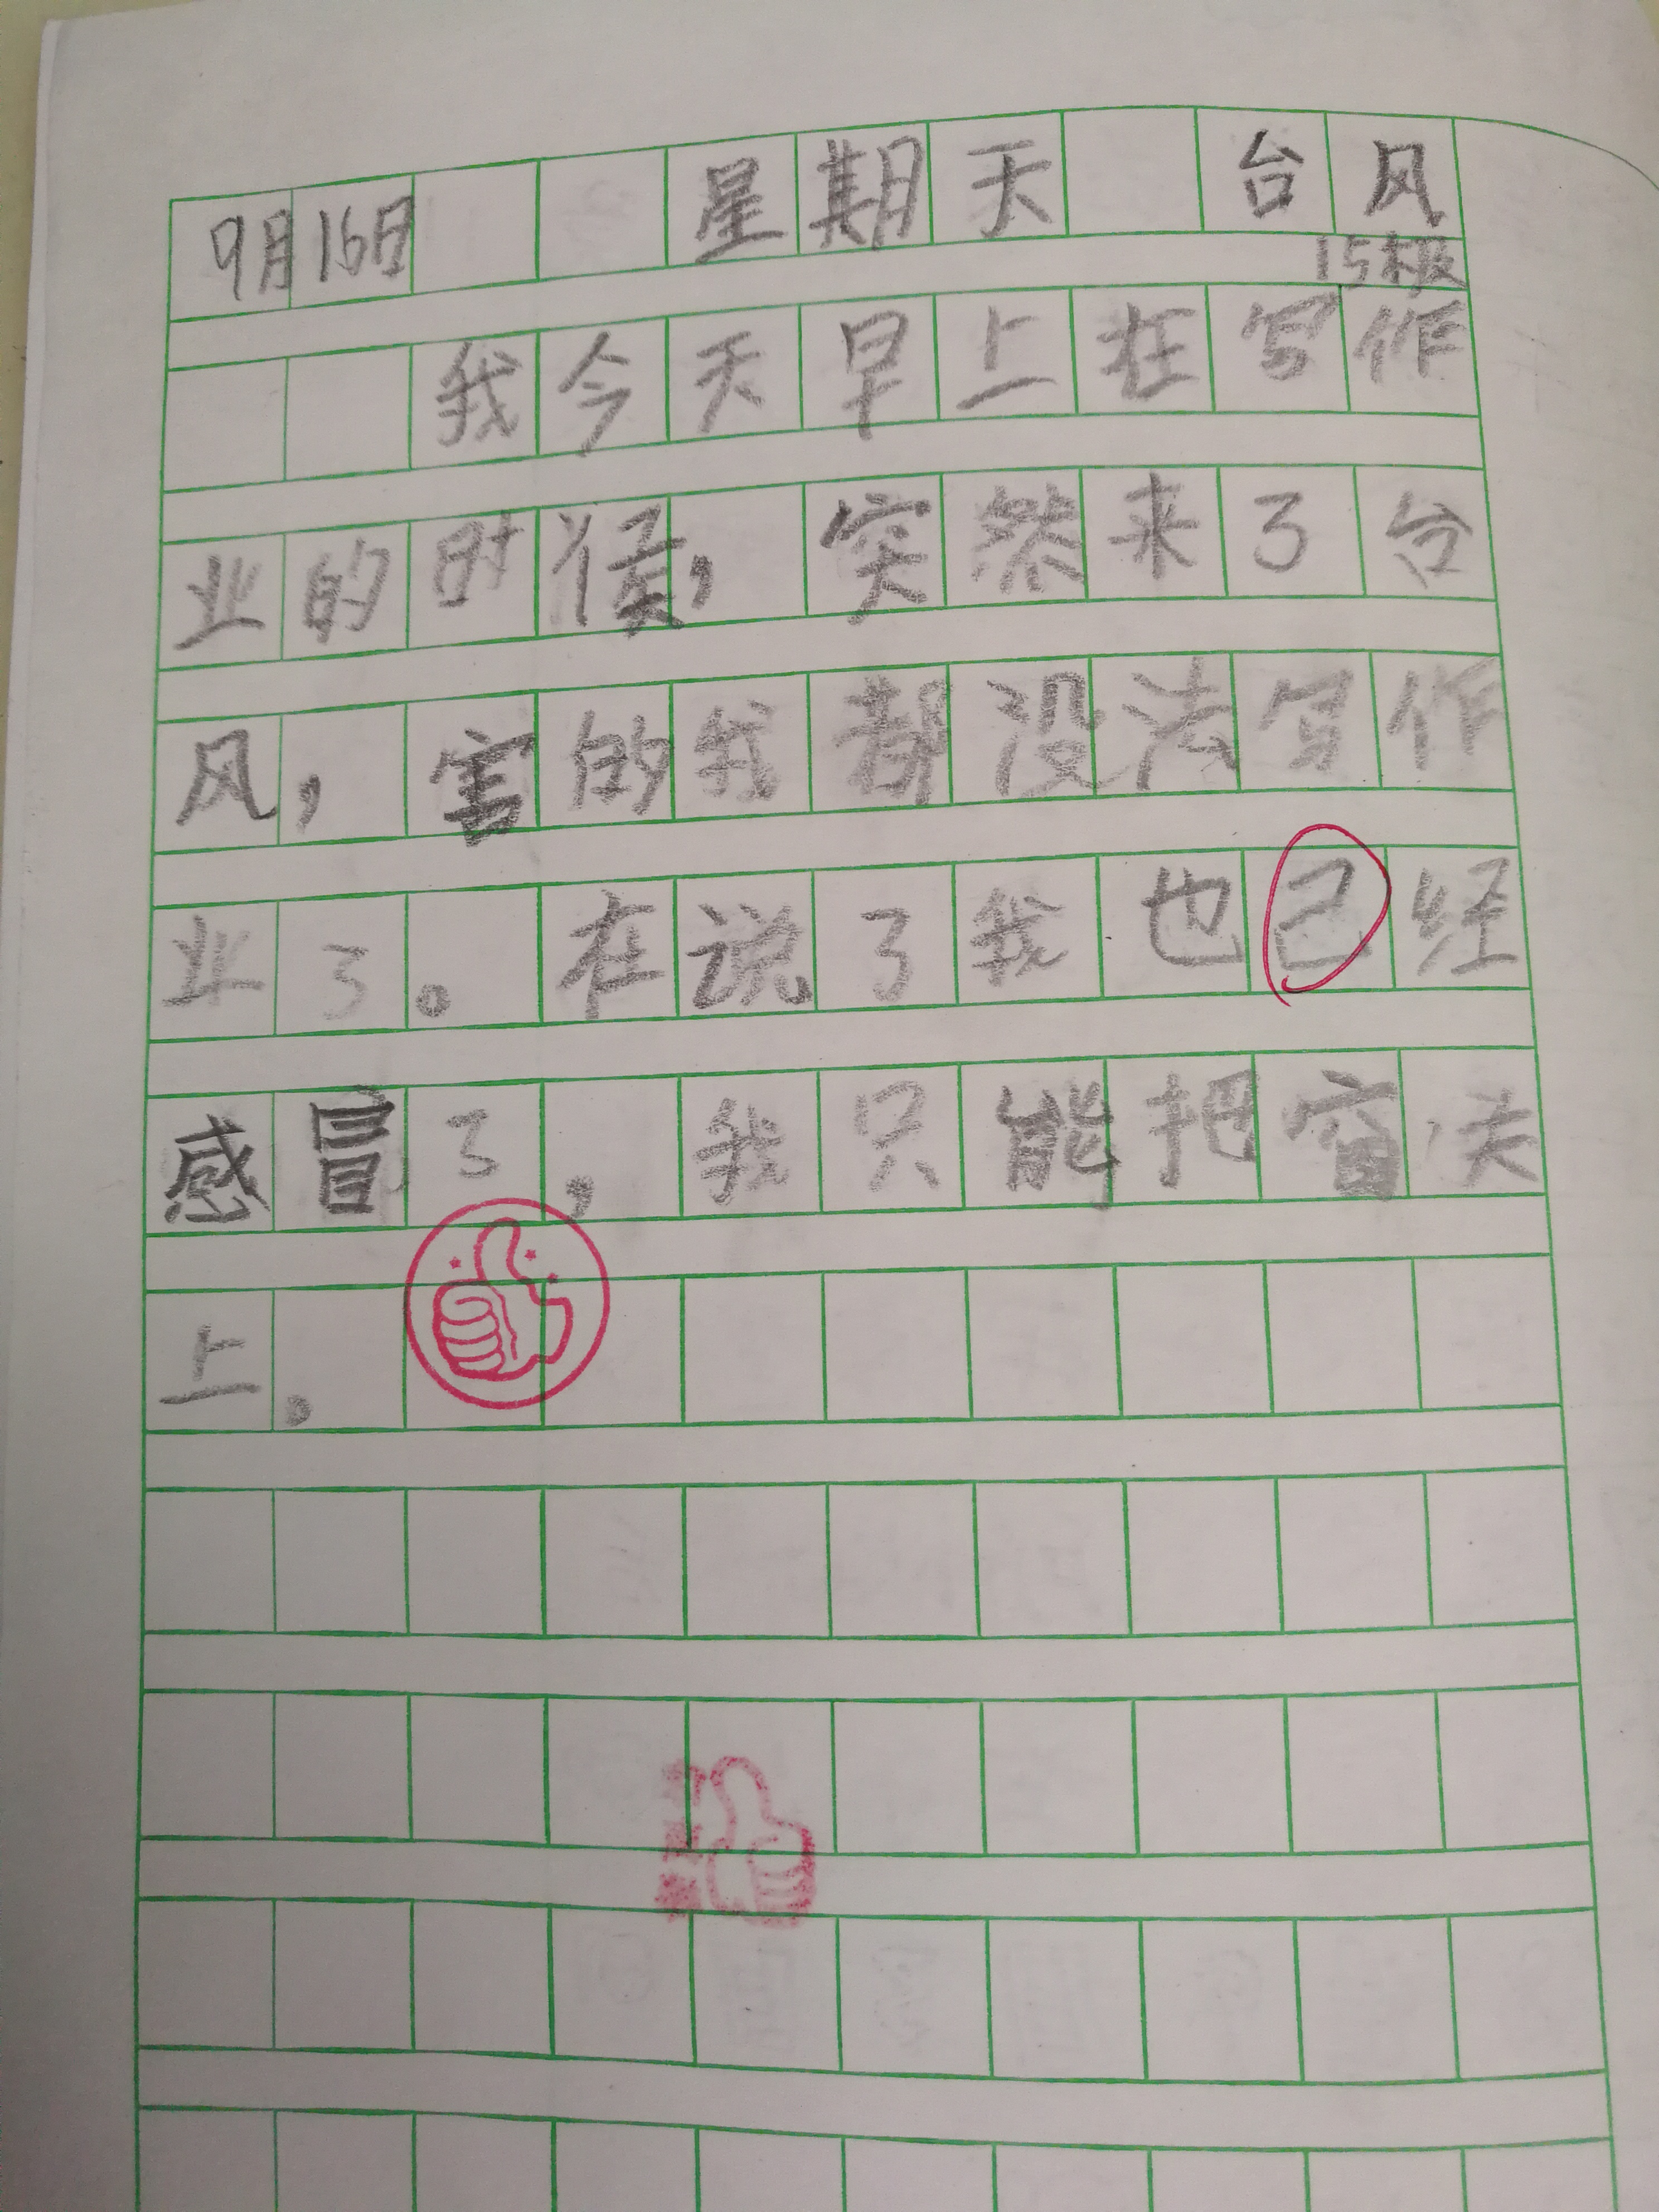 9月16日 星期天 台风
15极
我今天早上在写作
业的时候，突然来了台
风，害的我都没法写作
业了。在说了我也己经
感冒了，我只能把窗关
上。